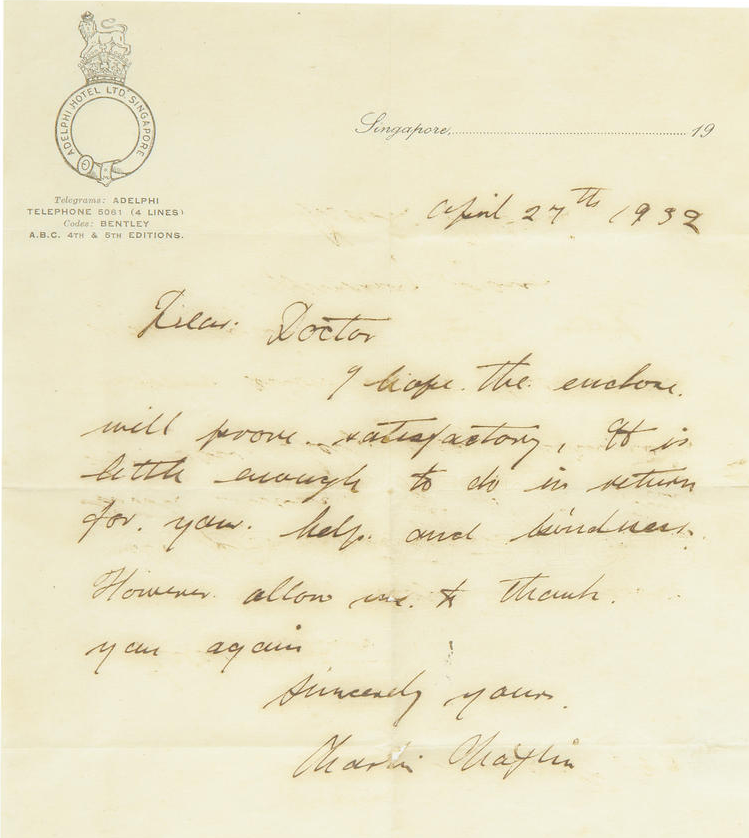 ADELPHI HOTEL LTD SINGAPORE
Telegrams: ADELPHI
TELEPHONE 5061 (4 LINES)
Codes: BENTLEY
A.B.C. 4TH & 5TH EDITIONS.
Singapore, 19
April 27th 1932
Dear: Doctor
I hope the enclose
will proove satisfactory, It is
little enough to do in return
for your help and kindness.
However allow me to thank
you again
Sincerely yours.
Charlie Chaplin